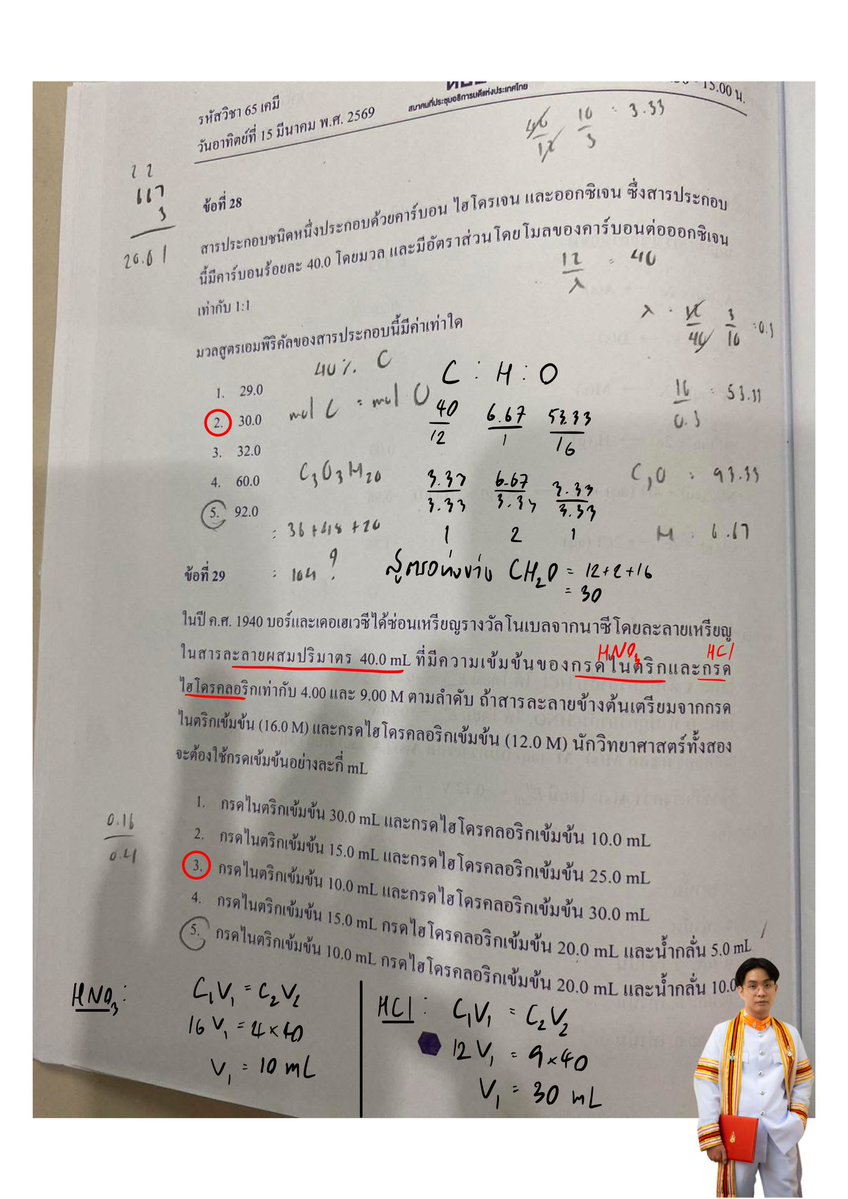 รหัสวิชา 65 เคมี
วันอาทิตย์ที่ 15 มีนาคม พ.ศ. 2569
สมาคมที่ประชุมอธิการบดีแห่งประเทศไทย
15.00 น.
46/12 10/3 = 3.33
2 2
667
3
20.01
ข้อที่ 28
สารประกอบชนิดหนึ่งประกอบด้วยคาร์บอน ไฮโดรเจน และออกซิเจน ซึ่งสารประกอบ
นี้มีคาร์บอนร้อยละ 40.0 โดยมวล และมีอัตราส่วนโดยโมลของคาร์บอนต่อออกซิเจน
เท่ากับ 1:1
12/λ = 40
มวลสูตรเอมพิริคัลของสารประกอบนี้มีค่าเท่าใด
40% C
mol C = mol O
1. 29.0
2. 30.0
3. 32.0
4. 60.0
5. 92.0
C : H : O
40/12 6.67/1 53.33/16
3.33/3.33 6.67/3.33 3.33/3.33
1 2 1
3/10 = 0.3
16/0.3 = 53.33
C,O = 93.33
H = 6.67
C3O3H20
= 36+48+20
= 104 ?
สูตรอย่างง่าย CH2O = 12+2+16
= 30
ข้อที่ 29
ในปี ค.ศ. 1940 บอร์และเดอเฮเวซีได้ซ่อนเหรียญรางวัลโนเบลจากนาซีโดยละลายเหรียญ
HNO3 HCl
ในสารละลายผสมปริมาตร 40.0 mL ที่มีความเข้มข้นของกรดไนตริกและกรด
ไฮโดรคลอริกเท่ากับ 4.00 และ 9.00 M ตามลำดับ ถ้าสารละลายข้างต้นเตรียมจากกรด
ไนตริกเข้มข้น (16.0 M) และกรดไฮโดรคลอริกเข้มข้น (12.0 M) นักวิทยาศาสตร์ทั้งสอง
จะต้องใช้กรดเข้มข้นอย่างละกี่ mL
0.16
1. กรดไนตริกเข้มข้น 30.0 mL และกรดไฮโดรคลอริกเข้มข้น 10.0 mL
2. กรดไนตริกเข้มข้น 15.0 mL และกรดไฮโดรคลอริกเข้มข้น 25.0 mL
3. กรดไนตริกเข้มข้น 10.0 mL และกรดไฮโดรคลอริกเข้มข้น 30.0 mL
4. กรดไนตริกเข้มข้น 15.0 mL กรดไฮโดรคลอริกเข้มข้น 20.0 mL และน้ำกลั่น 5.0 mL
5. กรดไนตริกเข้มข้น 10.0 mL กรดไฮโดรคลอริกเข้มข้น 20.0 mL และน้ำกลั่น 10.0
HNO3 : C1V1 = C2V2
16 V1 = 4×40
V1 = 10 mL
HCl : C1V1 = C2V2
12 V1 = 9×40
V1 = 30 mL